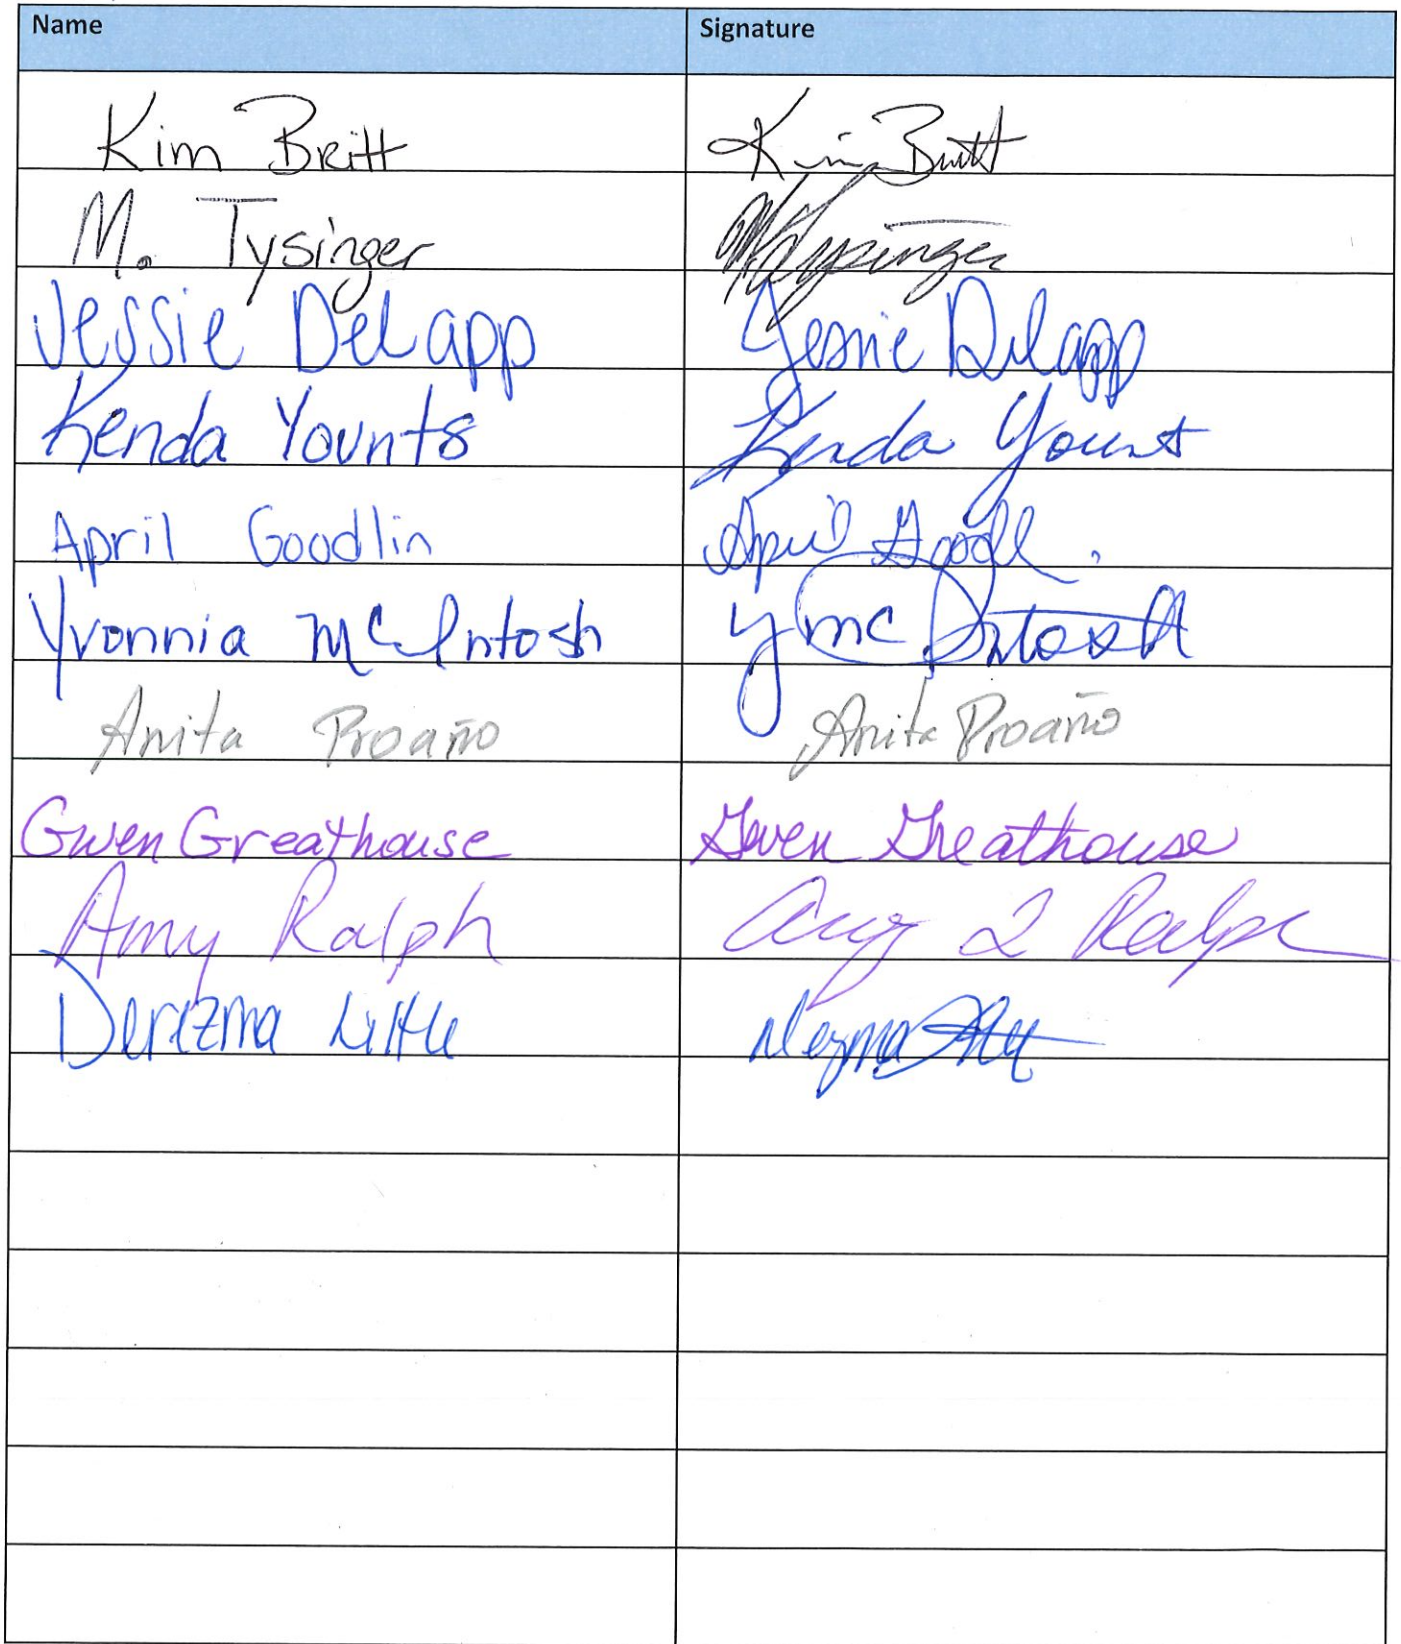 Name Signature
Kim Britt Kim Britt
M. Tysinger M Tysinger
Jessie Delapp Jessie Delapp
Kenda Younts Kenda Yount
April Goodlin April Goodl
Yvonnia McIntosh Y McIntosh
Anita Proaño Anita Proaño
Gwen Greathouse Gwen Greathouse
Amy Ralph Amy L Ralph
Derezma Little